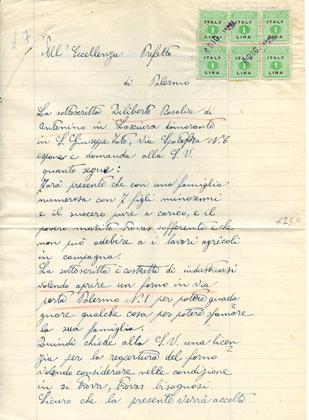 All'Eccellenza Prefetto
di Palermo
ITALY 1 LIRA
ITALY 1 LIRA
ITALY 1 LIRA
ITALY 1 LIRA
ITALY 1 LIRA
ITALY 1 LIRA
La sottoscritta Diliberto Rosalia di
Antonino in dimorante
in S. Giuseppe Jato, via N. 6
espone e domanda alla S. V.
quanto segue:
Farà presente che con una famiglia
numerosa con 7 figli minorenni
e il suocero pure a carico, e il
povero marito sofferente e che
non può adebire a i lavori agricoli
in campagna.
La sottoscritta è costretta di industriarsi
volendo aprire un forno in via
porta Palermo N. 1 per potere guada
gnare qualche cosa per potere sfamare
la sua famiglia.
Quindi chiede alla S. V. una licen
zia per la reapertura del forno
volendo considerare nelle condizione
in si trova, bisognosi
Sicuro che la presente verrà accolta